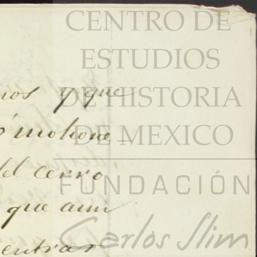 CENTRO DE
ESTUDIOS
DE HISTORIA
DE MEXICO
FUNDACIÓN
Carlos Slim
nos y que
ó mohone
del cerro
que aun
entrar